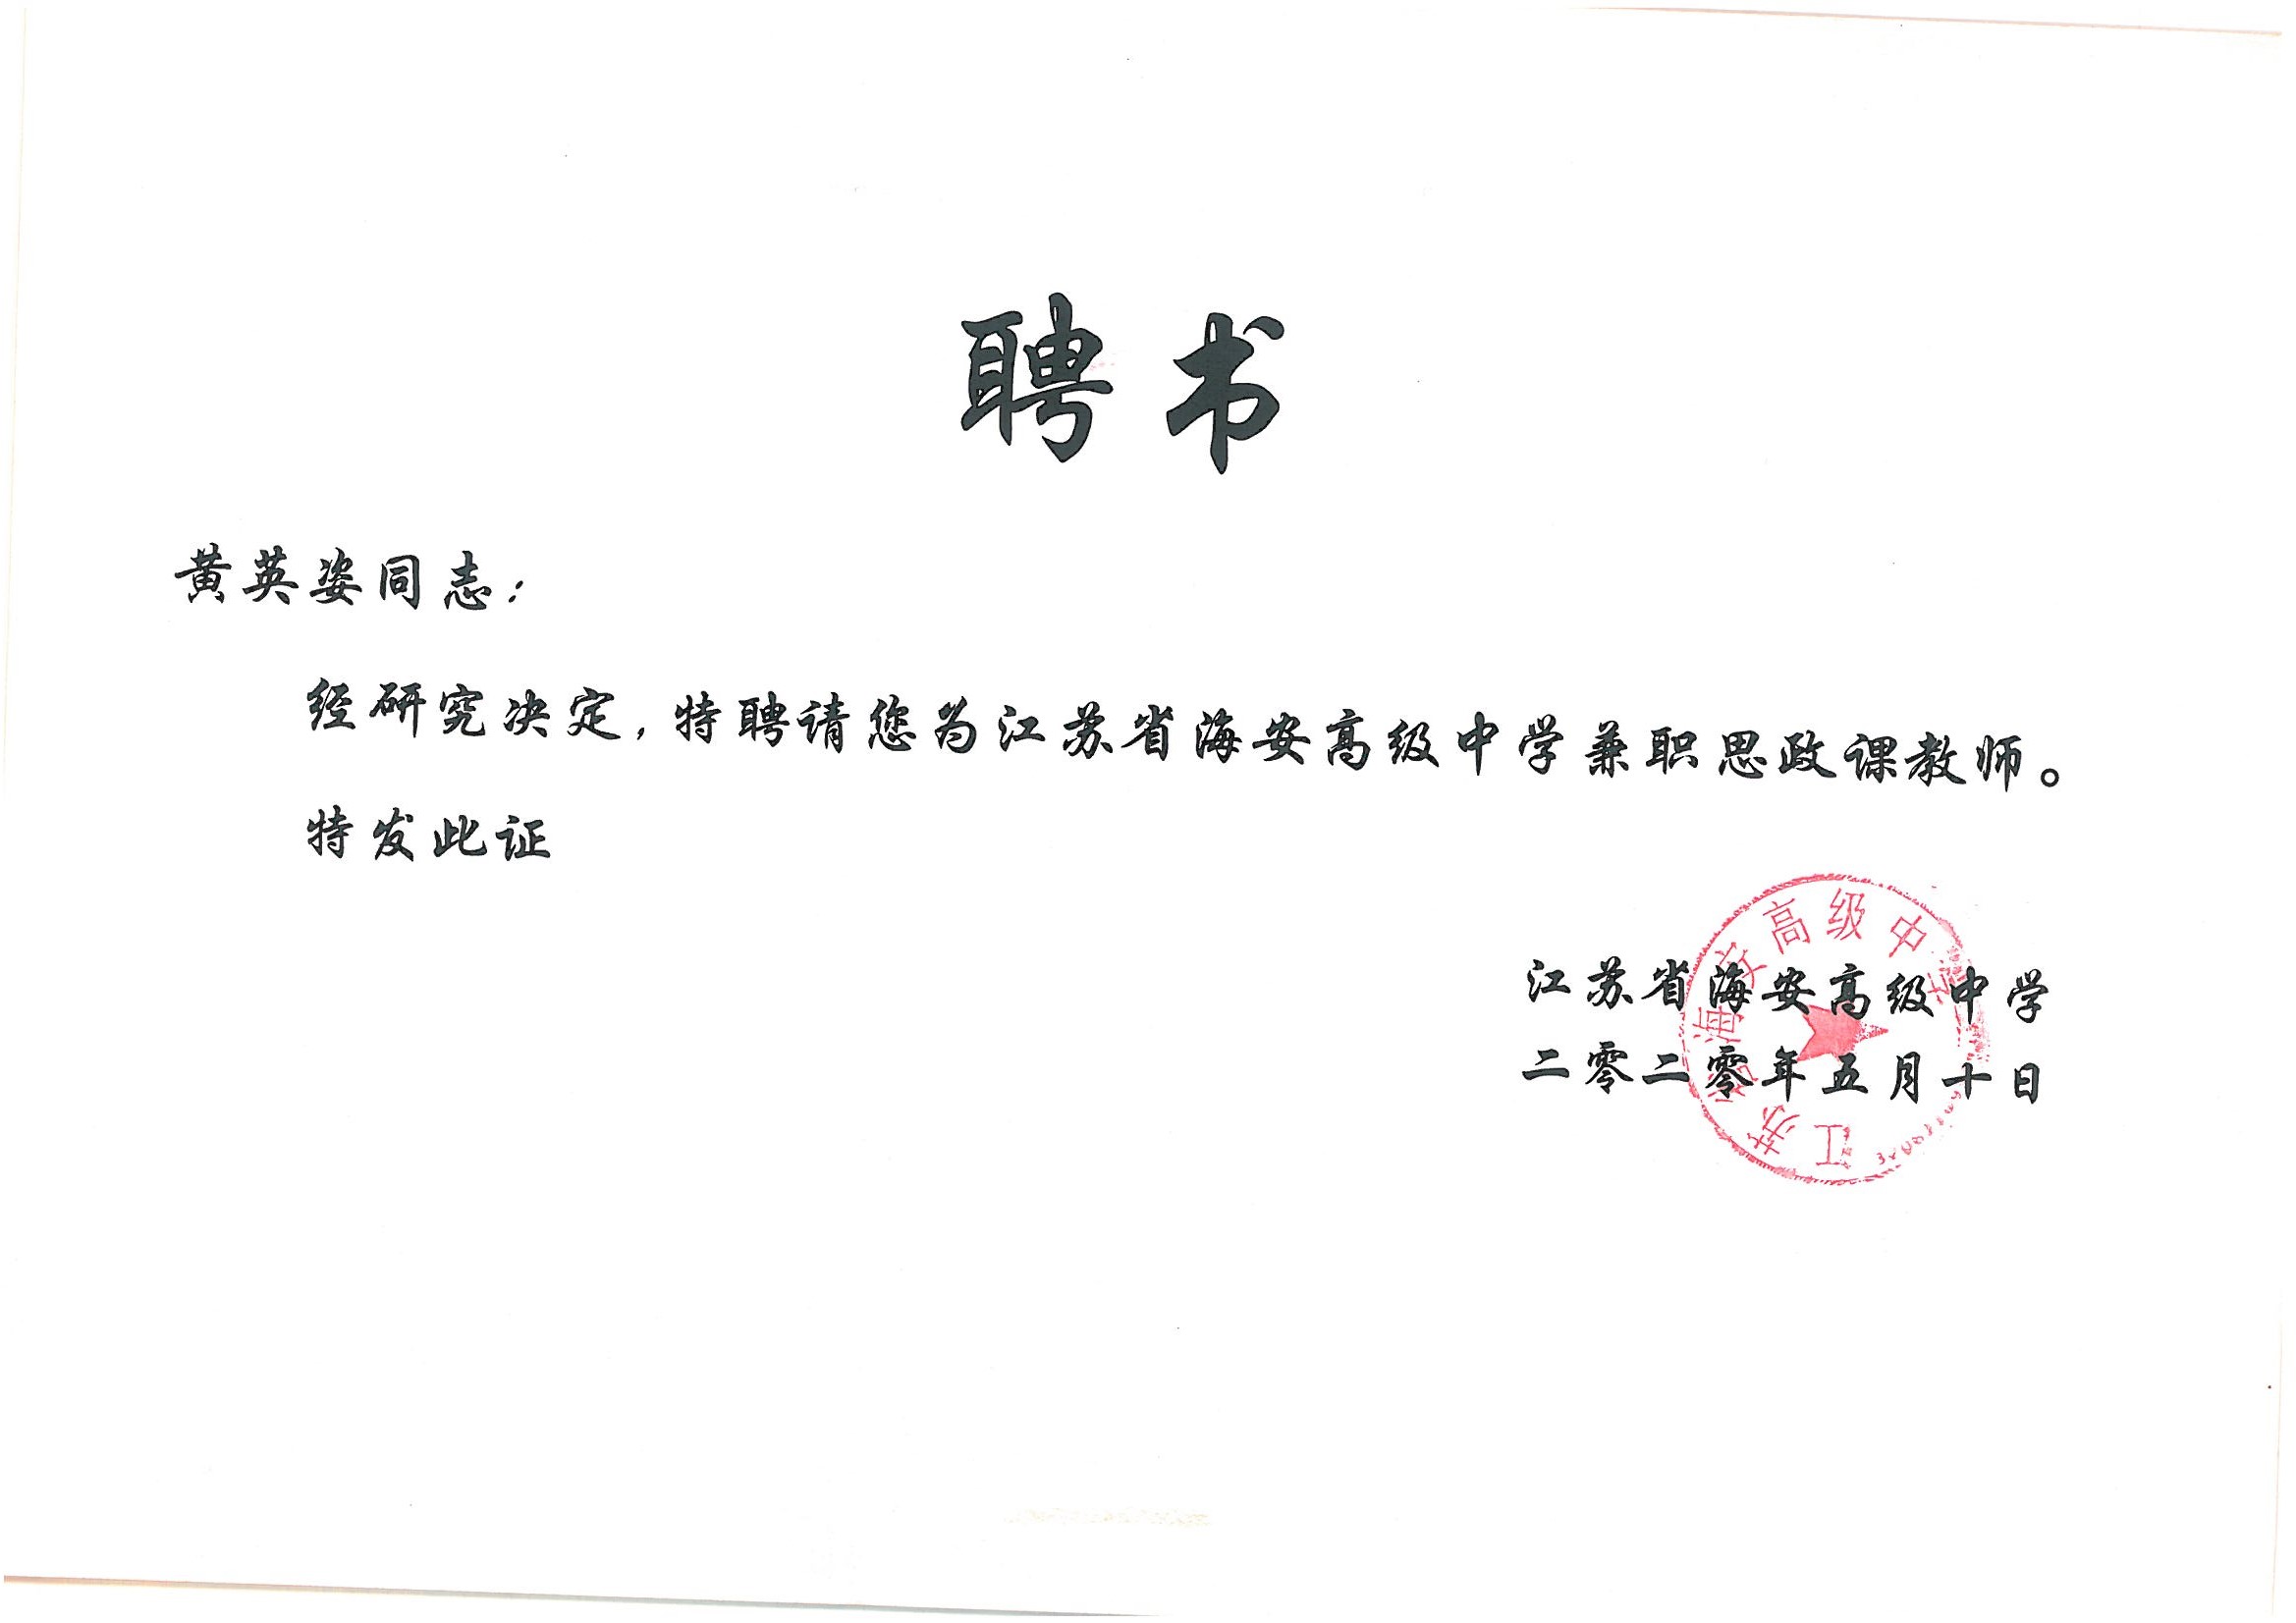 聘书
黄英姿同志：
经研究决定，特聘请您为江苏省海安高级中学兼职思政课教师。
特发此证
江苏省海安高级中学
二零二零年五月十日
江苏省海安高级中学